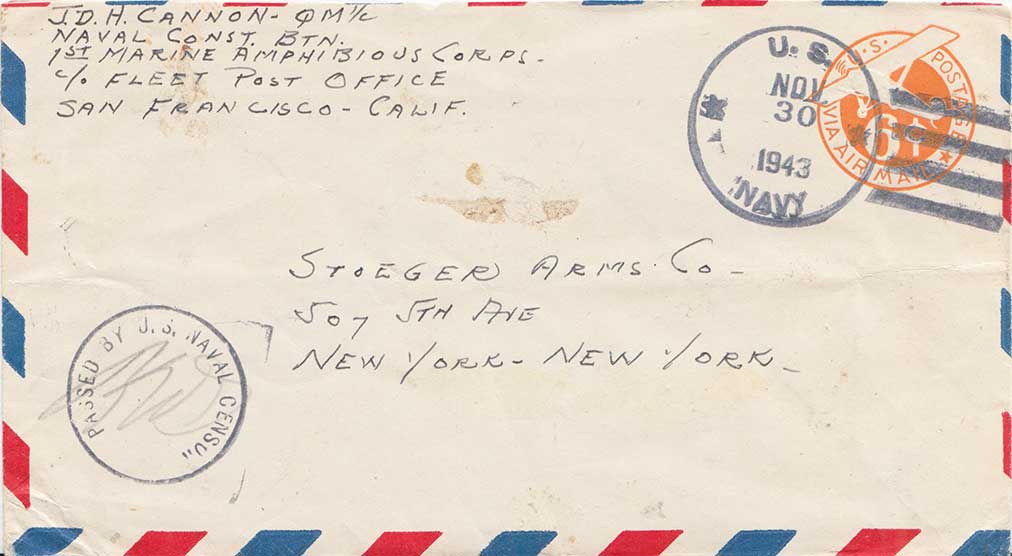 J.D.H. CANNON - QM 1/c
NAVAL CONST. BTN.
1ST MARINE AMPHIBIOUS CORPS -
c/o FLEET POST OFFICE
SAN FRANCISCO - CALIF.
U. S.
NOV
30
1943
NAVY
U.S. POSTAGE
6¢
VIA AIR MAIL
STOEGER ARMS CO -
507 5TH AVE
NEW YORK - NEW YORK -
PASSED BY U.S. NAVAL